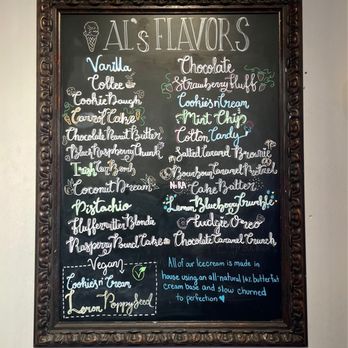 AL's FLAVORS
Vanilla
Coffee
Cookie Dough
Carrot Cake
Chocolate Peanut Butter
Black Raspberry Chunk
Coconut Dream
Pistachio
Fluffernutter Blondie
Raspberry Bundt Cake
Vegan
Cookies n' Cream
Lemon Poppy Seed
Chocolate
Strawberry Fluff
Cookies n Cream
Mint Chip
Cotton Candy
Salted Caramel Brownie
Bourbon Caramel Pretzel
Cake Batter
Lemon Blueberry Crumble
Fudgie Oreo
Chocolate Caramel Crunch
All of our Icecream is made in
house using an all-natural 16% butterfat
cream base and slow churned
to perfection